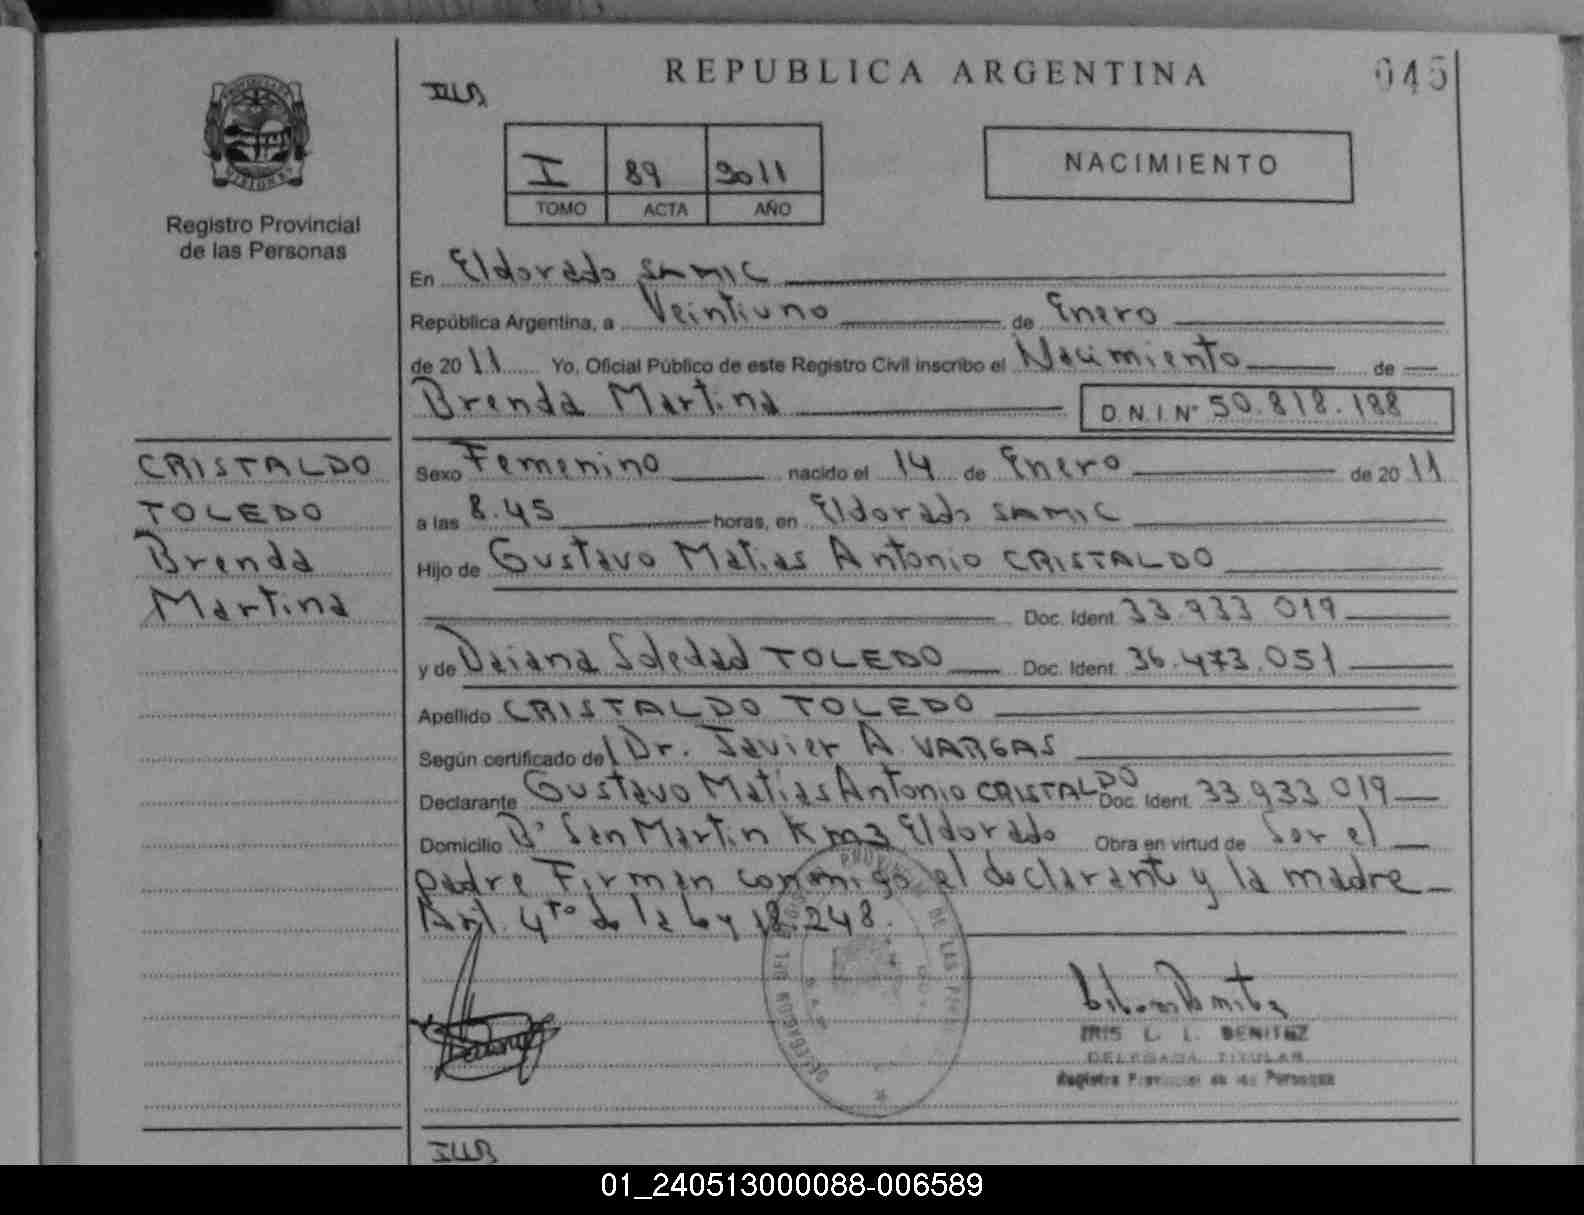 REPUBLICA ARGENTINA
045
ILLB
I 89 2011
TOMO ACTA AÑO
NACIMIENTO
Registro Provincial
de las Personas
En Eldorado SAMIC
República Argentina, a Veintiuno de Enero
de 2011 Yo, Oficial Público de este Registro Civil inscribo el Nacimiento de
Brenda Martina D.N.I.N° 50.818.188
CRISTALDO
TOLEDO
Brenda
Martina
Sexo Femenino nacido el 14 de Enero de 2011
a las 8.45 horas, en Eldorado SAMIC
Hijo de Gustavo Matias Antonio CRISTALDO
Doc. Ident. 33.933.019
y de Daiana Soledad TOLEDO Doc. Ident. 36.473.051
Apellido CRISTALDO TOLEDO
Según certificado del Dr. Javier A. VARGAS
Declarante Gustavo Matias Antonio CRISTALDO Doc. Ident. 33.933.019
Domicilio B° San Martin Km3 Eldorado Obra en virtud de Ser el
padre Firman conmigo el declarante y la madre
Art. 4to de la ley 18.248.
IRIS L. L. BENITEZ
DELEGADA TITULAR
Registro Provincial de las Personas
ILLB
01_240513000088-006589